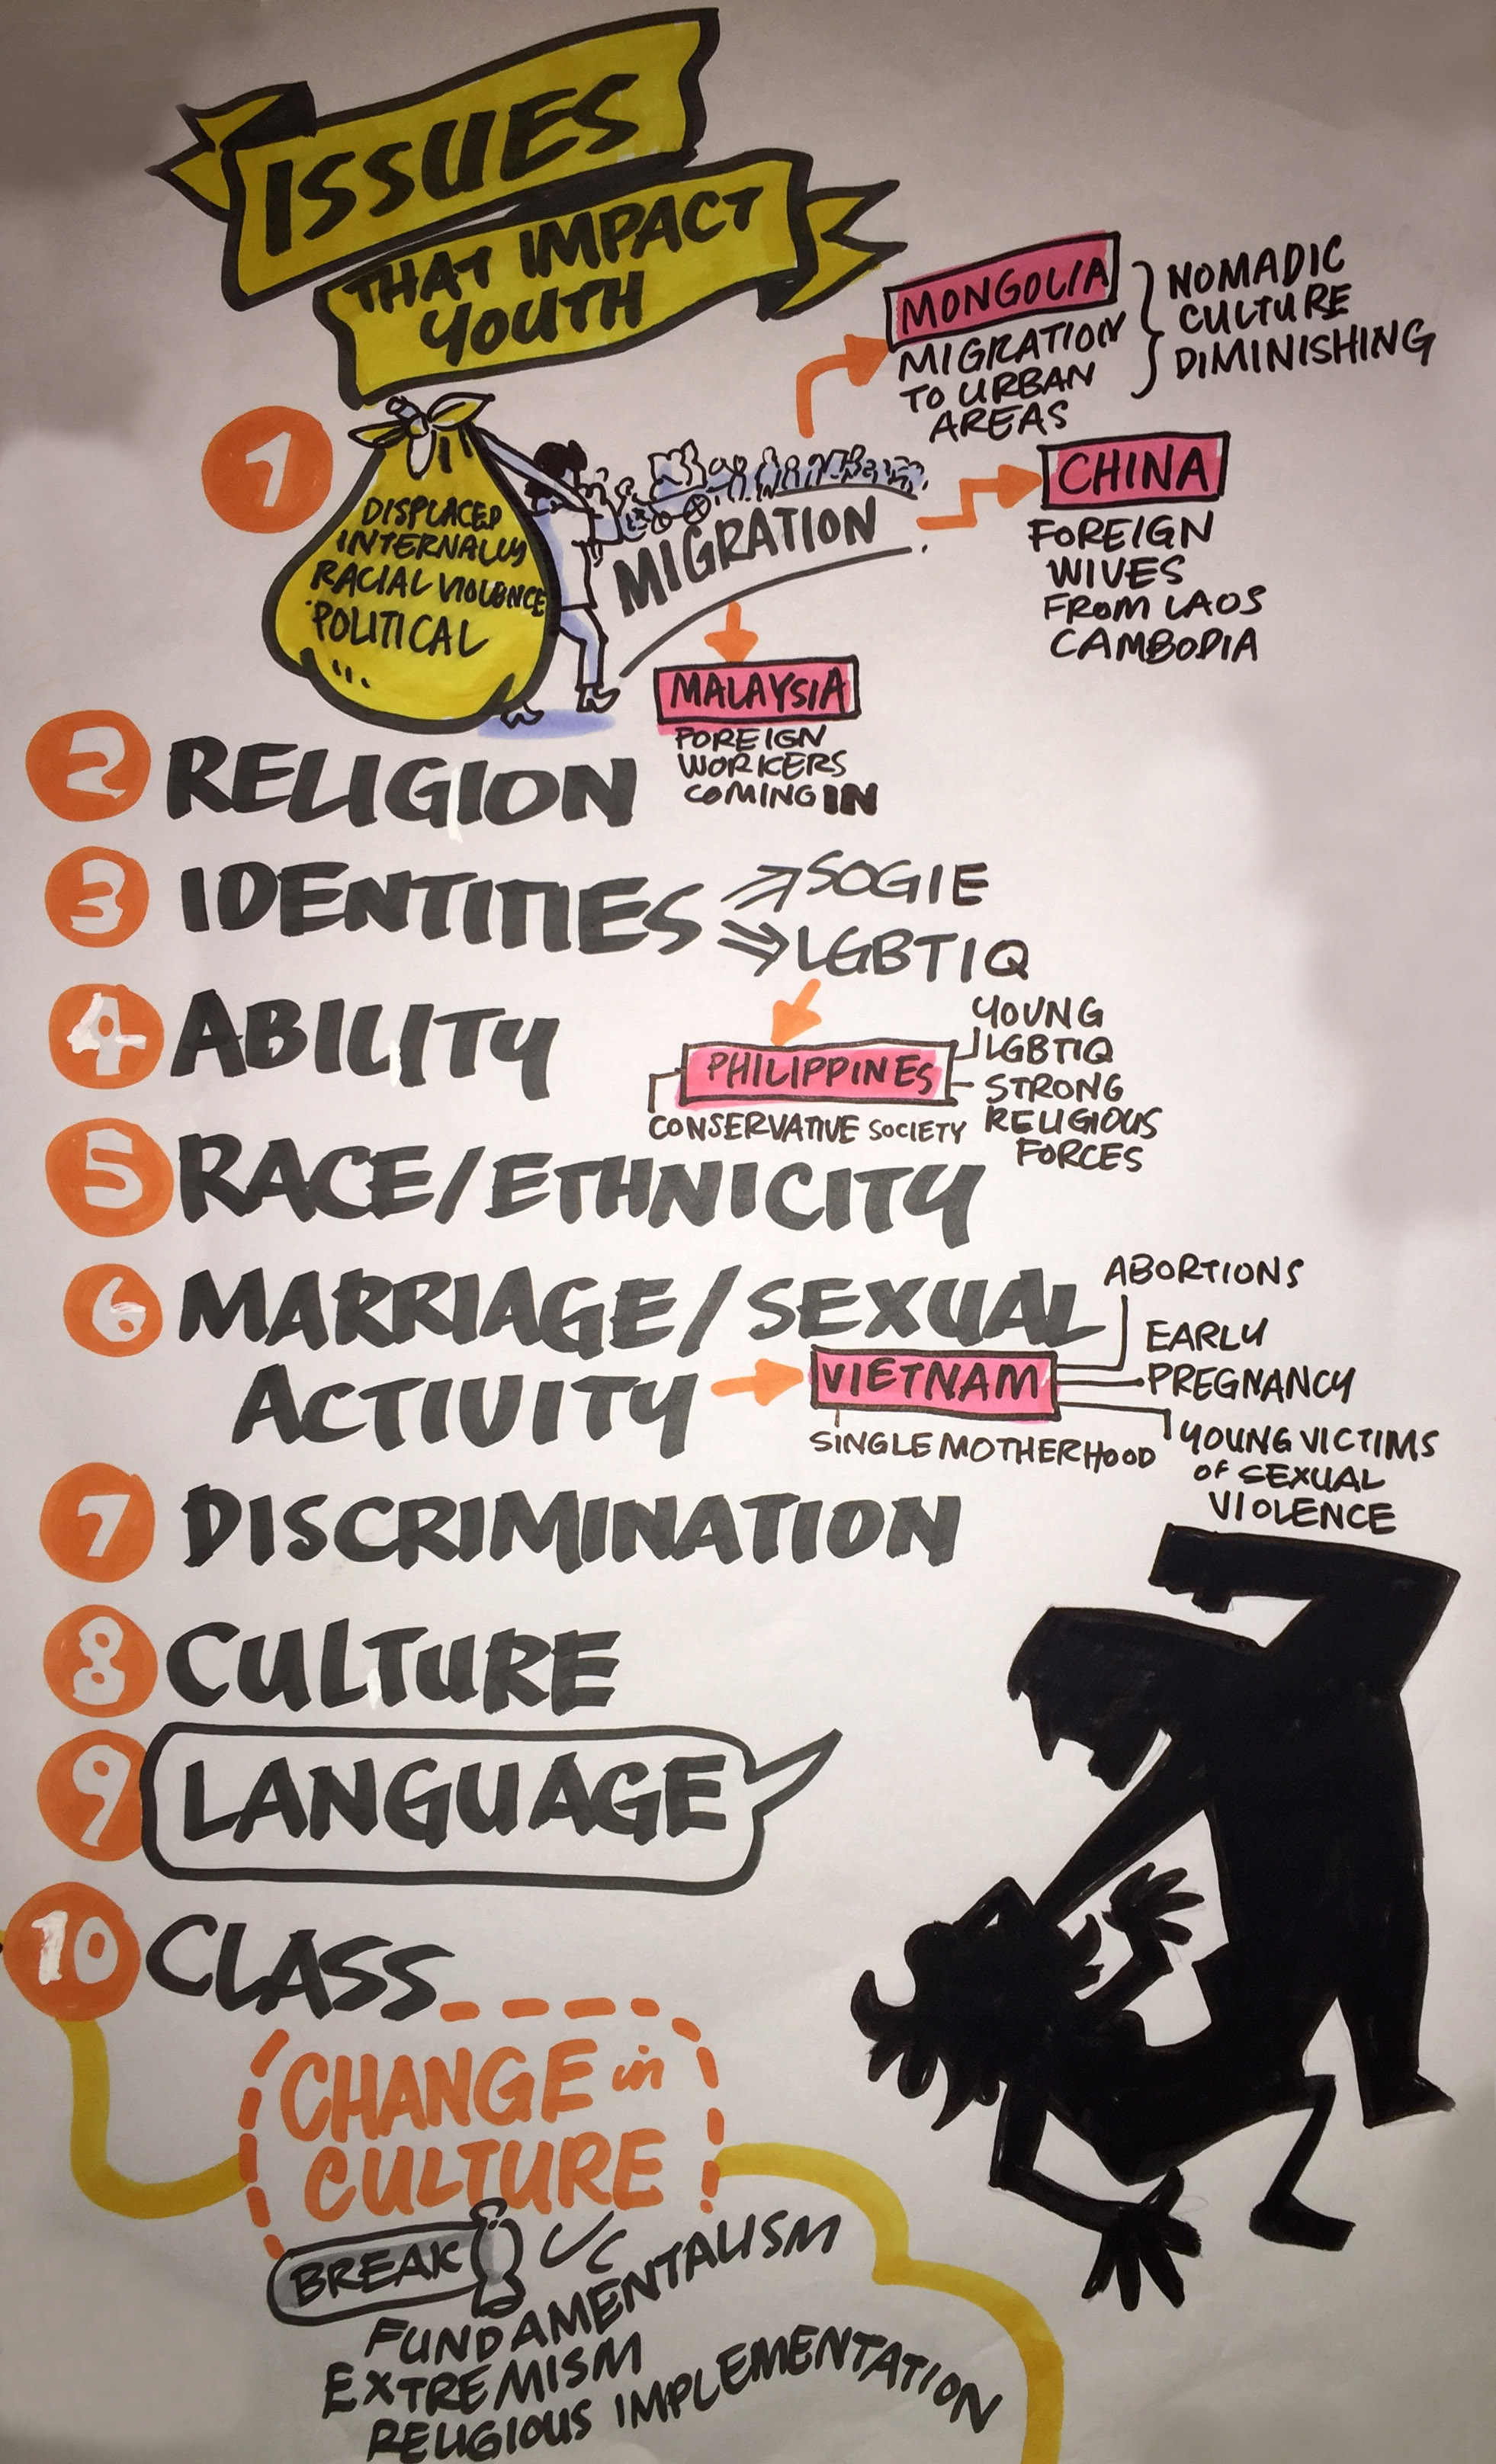 ISSUES
THAT IMPACT
YOUTH
1
DISPLACED
INTERNALLY
RACIAL VIOLENCE
POLITICAL
MIGRATION
MONGOLIA
MIGRATION
TO URBAN
AREAS
NOMADIC
CULTURE
DIMINISHING
CHINA
FOREIGN
WIVES
FROM LAOS
CAMBODIA
MALAYSIA
FOREIGN
WORKERS
COMING IN
2 RELIGION
3 IDENTITIES
SOGIE
LGBTIQ
4 ABILITY
PHILIPPINES
CONSERVATIVE SOCIETY
YOUNG
LGBTIQ
STRONG
RELIGIOUS
FORCES
5 RACE/ETHNICITY
6 MARRIAGE/SEXUAL
ACTIVITY
VIETNAM
SINGLE MOTHERHOOD
ABORTIONS
EARLY
PREGNANCY
YOUNG VICTIMS
OF SEXUAL
VIOLENCE
7 DISCRIMINATION
8 CULTURE
9 LANGUAGE
10 CLASS
CHANGE in
CULTURE
BREAK
FUNDAMENTALISM
EXTREMISM
RELIGIOUS IMPLEMENTATION